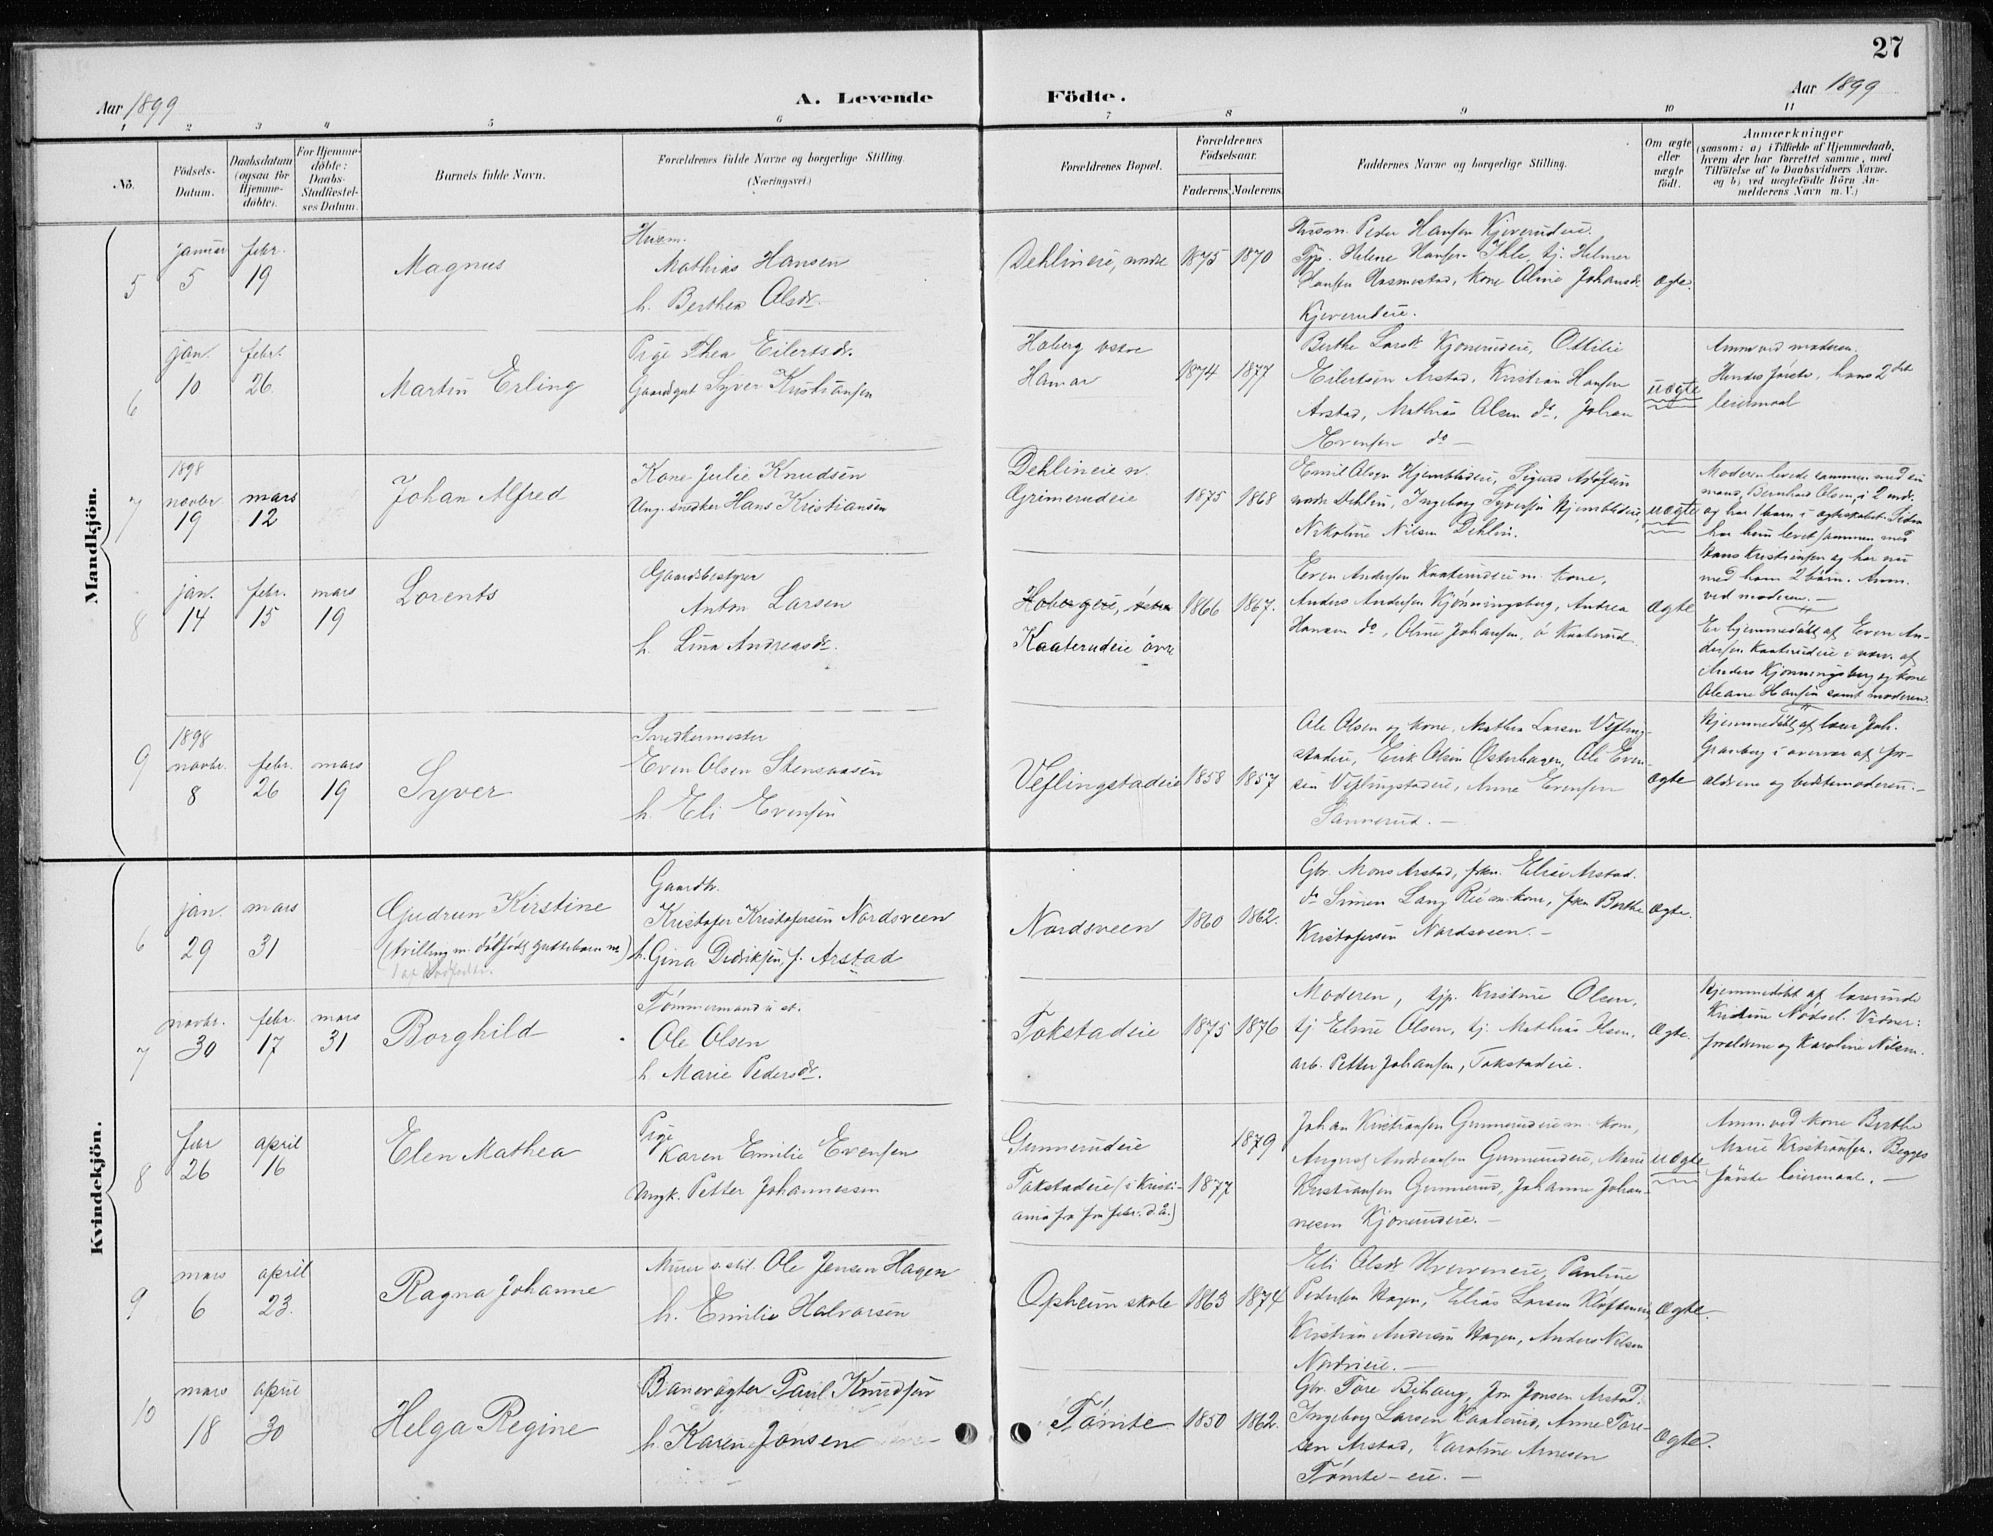 27
Aar 1899
A. Levende Födte.
Aar 1899
1 2 3 4 5 6 7 8 9 10 11
No.
Födsels-Datum.
Daabsdatum (ogsaa for Hjemme-döbte).
For Hjemme-döbte: Daabs-Stadfæstel-ses Datum.
Barnets fulde Navn.
Forældrenes fulde Navne og borgerlige Stilling.
(Næringsvei.)
Forældrenes Bopæl.
Forældrenes Födselsaar.
Faderens. Moderens.
Faddernes Navne og borgerlige Stilling.
Om ægte eller uægte födt.
Anmærkninger
(saasom: a) i Tilfælde af Hjemmedaab,
hvem der har forrettet samme, med
Tilföielse af to Daabsvidners Navne.
og b) ved uægtefödte Börn An-
melderens Navn m. V.)
Mandkjön.
5
januar 5
febr. 19
Magnus
Husm.
Mathias Hansen
h. Berthea Olsdr.
Dehlineie, nedre
1875 1870
Husm. Peder Hansen Kjeverudeie.
Helene Hansen Ihle, tj. Helmer
Hansen Rasmestad, kone Oline Johansdr.
Kjeverudeie.
ægte.
6
jan. 10
febr. 26
Martin Erling
Pige Thea Eilertsdr.
Gaardgut Syver Kristiansen
Hoberg østre
Hamar
1874 1877
Berthe Larsdr. Kjonerudeie, Ottilie
Eilertsen Arstad, Kristian Hansen
Arstad, Mathias Olsen do, Johan
Evensen do —
uægte
Anm. ved moderen.
Hendes første, hans 2det
leiermaal
7
1898
novbr 19
mars 12
Johan Alfred
Kone Julie Knudsen
Ung. snedker Hans Kristiansen
Dehlineie n.
Grimerudeie
1875 1868
Emil Olsen Hjemblideie, Sigurd
nedre Dehlin, Ingeborg Syversen Hjemblideie,
Nikoline Nilsen Dehlin.
uægte
Moderen levede sammen med sin
mand, Bernhard Olsen, i 2 mdr.
og har 1 barn i ægteskabet. Siden
har hun levet sammen med
Hans Kristiansen og har nu
med ham 2 börn. Anm.
ved moderen. —
8
jan. 14
febr. 15
mars 19
Lorents
Gaardsbestyrer
Anton Larsen
h. Lina Andreasdr.
Hobergeie, østre
Kaaterudeie övre
1866 1867.
Even Andersen Kaaterudeie m. kone,
Anders Andersen Kjønningsberg, Andrea
Hansen do, Oline Johansen, ö Kaaterud
Ægte
Er hjemmedöbt af Even An-
dersen Kaaterudeie i nærv. af
Anders Kjønningsberg og kone
Oleane Hansen samt moderen.
9
1898
novbr. 8
febr. 26
mars 19
Syver
Snedkermester
Even Olsen Stensaasen
h. Eli Evensen
Veflingstadeie
1858 1857
Ole Olsen og kone, Mathea Larsen Vefling-
stadeie, Erik Olsen Østerhagen, Ole Even-
sen Veflingstadeie, Anne Evensen
Sannerud. —
Ægte
Hjemmedöbt af lærer Joh.
Granberg i overvær af for-
ældrene og bedstemoderen. —
Kvindekjön.
6
jan. 29
mars 31
Gudrun Kirstine
(tvilling m. dødfødt guttebarn
Gaardbr.
Kristofer Kristofersen Nordsveen
h. Gina Didriksen, f. Arstad
Nordsveen
1860 1862.
Gbr. Mons Arstad, frkn. Elise Arstad.
do Simen Lang Ree m. kone, frkn Berthe
Kristofersen Nordsveen. —
Ægte.
7
novbr. 30
febr. 17
mars 31
Borghild
Tømmermand u st.
Ole Olsen
h. Marie Pedersdr.
Tokstadeie
1875 1876
Moderen, tjp. Kristine Olsen,
tj. Eline Olsen, tj. Mathias Olsen,
arb. Petter Johansen, Tokstadeie.
Ægte.
Hjemmedöbt af lærerinde
Kristine Nødsel. Vidner:
forældrene og Karoline Nilsen.
8
febr 26
april 16
Elen Mathea
Pige
Karen Emilie Evensen
Ungk. Petter Johannessen
Gunnerudeie
Tokstadeie (i Kristi-
ania fra febr. d.å.)
1877 1879
Johan Kristiansen Gunnerudeie m. kone,
Andreasen Gunnerudeie, Marie
Kristiansen Gunnerud, Johanne Johan-
nesen Kjonerudeie. —
uægte
Anm. ved kone Berthe
Marie Kristiansen. Begges
første leiermaal. —
9
mars 6
april 23.
Ragna Johanne
Murer s. st. Ole Jensen Hagen
h. Emilie Halvorsen
Opheim skole
1863 1874
Eli Olsdr. Hverveneie, Pauline
Pedersen Hagen, Elias Larsen Kløften,
Kristian Andersen Hagen, Anders Nilsen
Nordvieie. —
Ægte.
10
mars 18
april 30
Helga Regine
Banevogter Paul Knudsen
h. Karen Jonsen
Tömte
1850 1862.
Gbr. Tore Bihaug, Jon Jonsen Arstad,
Ingeborg Larsen Kaaterud, Anne Tore-
sen Arstad, Karoline Arnesen
Tömte-eie. —
Ægte.